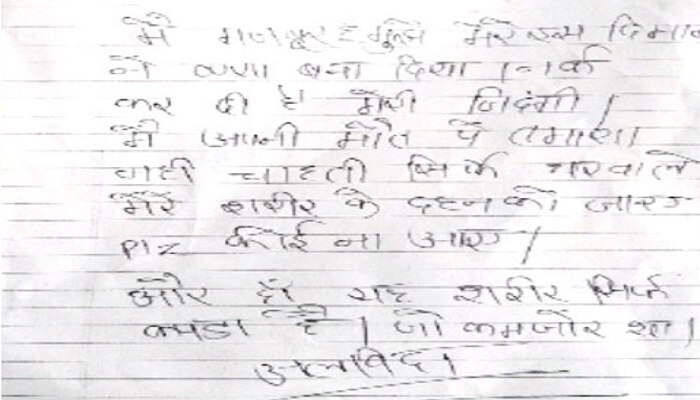 मैं मजबूर हूँ मुझे मेरे इस दिमाग
ने बना दिया । नर्क
कर दी है मेरी जिदंगी ।
मैं अपनी मौत पे तमाशा
नही चाहती सिर्फ घरवाले
मेरे शरीर के दहन को जाए
Plz कोई ना आए ।
और हाँ यह शरीर सिर्फ
कपडा है । जो कमजोर था ।
अलविदा